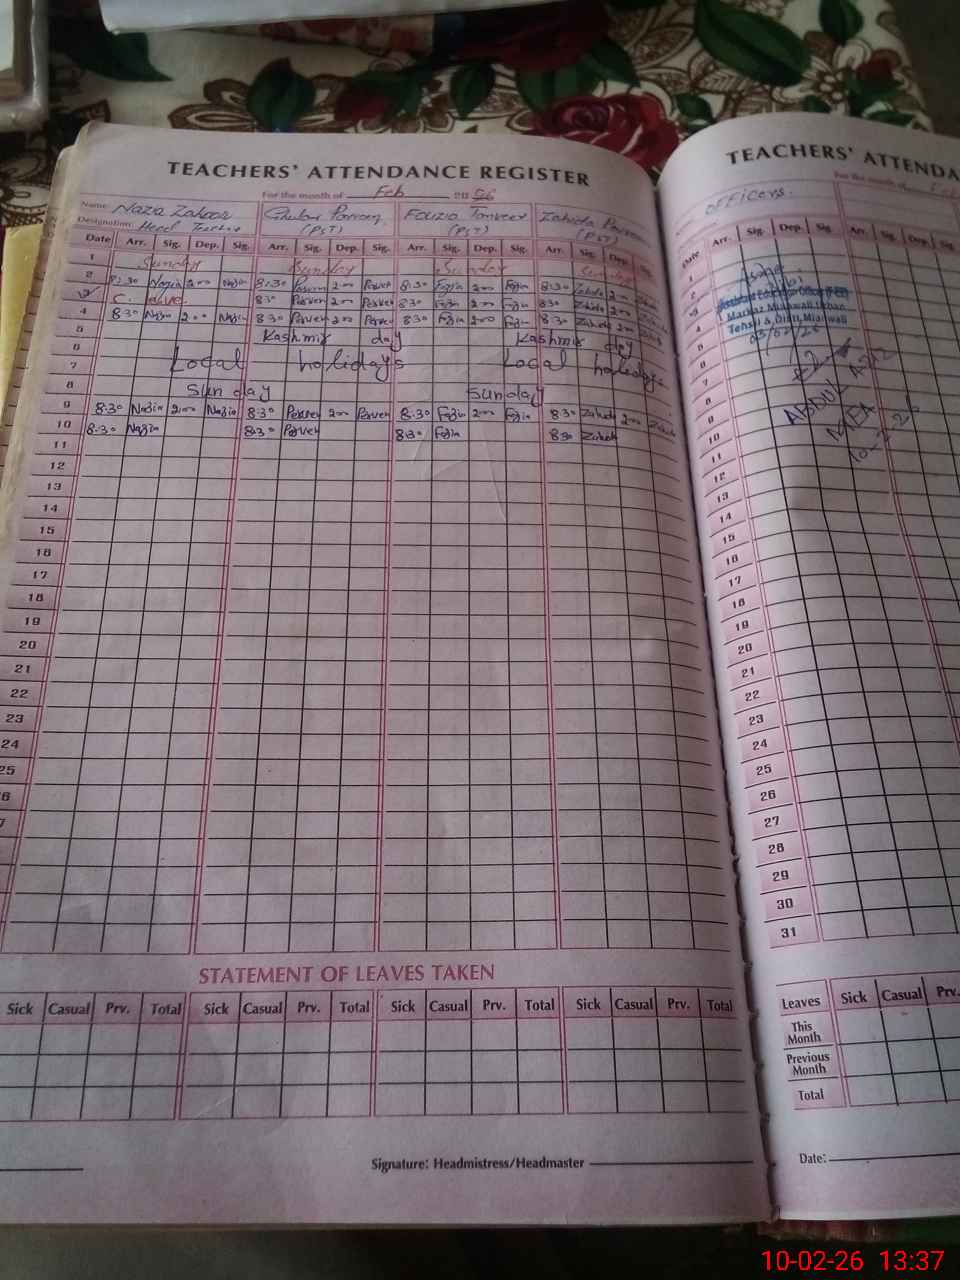 TEACHERS' ATTENDANCE REGISTER
For the month of Feb 20 26
Name: Nazia Zahoor Parveen Fouzia Tanveer Zahida Parveen
Designation: Head Teacher (PST) (PST) (PST)
Date Arr. Sig. Dep. Sig. Arr. Sig. Dep. Sig. Arr. Sig. Dep. Sig. Arr. Sig. Dep. Sig.
1 Sunday Sunday Sunday Sunday
2 8:30 Nazia 2:00 Nazia 8:30 Parveen 2:00 Parveen 8:30 Fozia 2:00 Fozia 8:30 Zahida 2:00 Zahida
3 C. leave 830 Parveen 2:00 Parveen 830 Fozia 2:00 Fozia 830 Zahida 2:00 Zahida
4 830 Nazia 2:00 Nazia 8:30 Parveen 2:00 Parveen 8:30 Fozia 2:00 Fozia 8:30 Zahida 2:00 Zahida
5 Kashmir day Kashmir day
6
7 Local holidays Local holidays
8 Sunday Sunday
9 8:30 Nazia 2:00 Nazia 8:30 Parveen 2:00 Parveen 8:30 Fozia 2:00 Fozia 8:30 Zahida 2:00 Zahida
10 8:30 Nazia 8:30 Parveen 8:30 Fozia 8:30 Zahida
11
12
13
14
15
16
17
18
19
20
21
22
23
24
25
6
7
STATEMENT OF LEAVES TAKEN
Sick Casual Prv. Total Sick Casual Prv. Total Sick Casual Prv. Total Sick Casual Prv. Total
Signature: Headmistress/Headmaster
TEACHERS' ATTENDA
For the month of Feb
officers.
Date Arr. Sig. Dep. Sig. Arr. Sig. Dep. Sig.
1
2
3
4
5
6
7
8
9
10
11
12
13
14
15
16
17
18
19
20
21
22
23
24
25
26
27
28
29
30
31
Assistant Education Officer
Markaz Mianwali Urban
Tehsil & Distt, Mianwali
03/02/26
ABDUL AZIZ
MEA
10-2-26
Leaves Sick Casual Prv.
This Month
Previous Month
Total
Date:
10-02-26 13:37